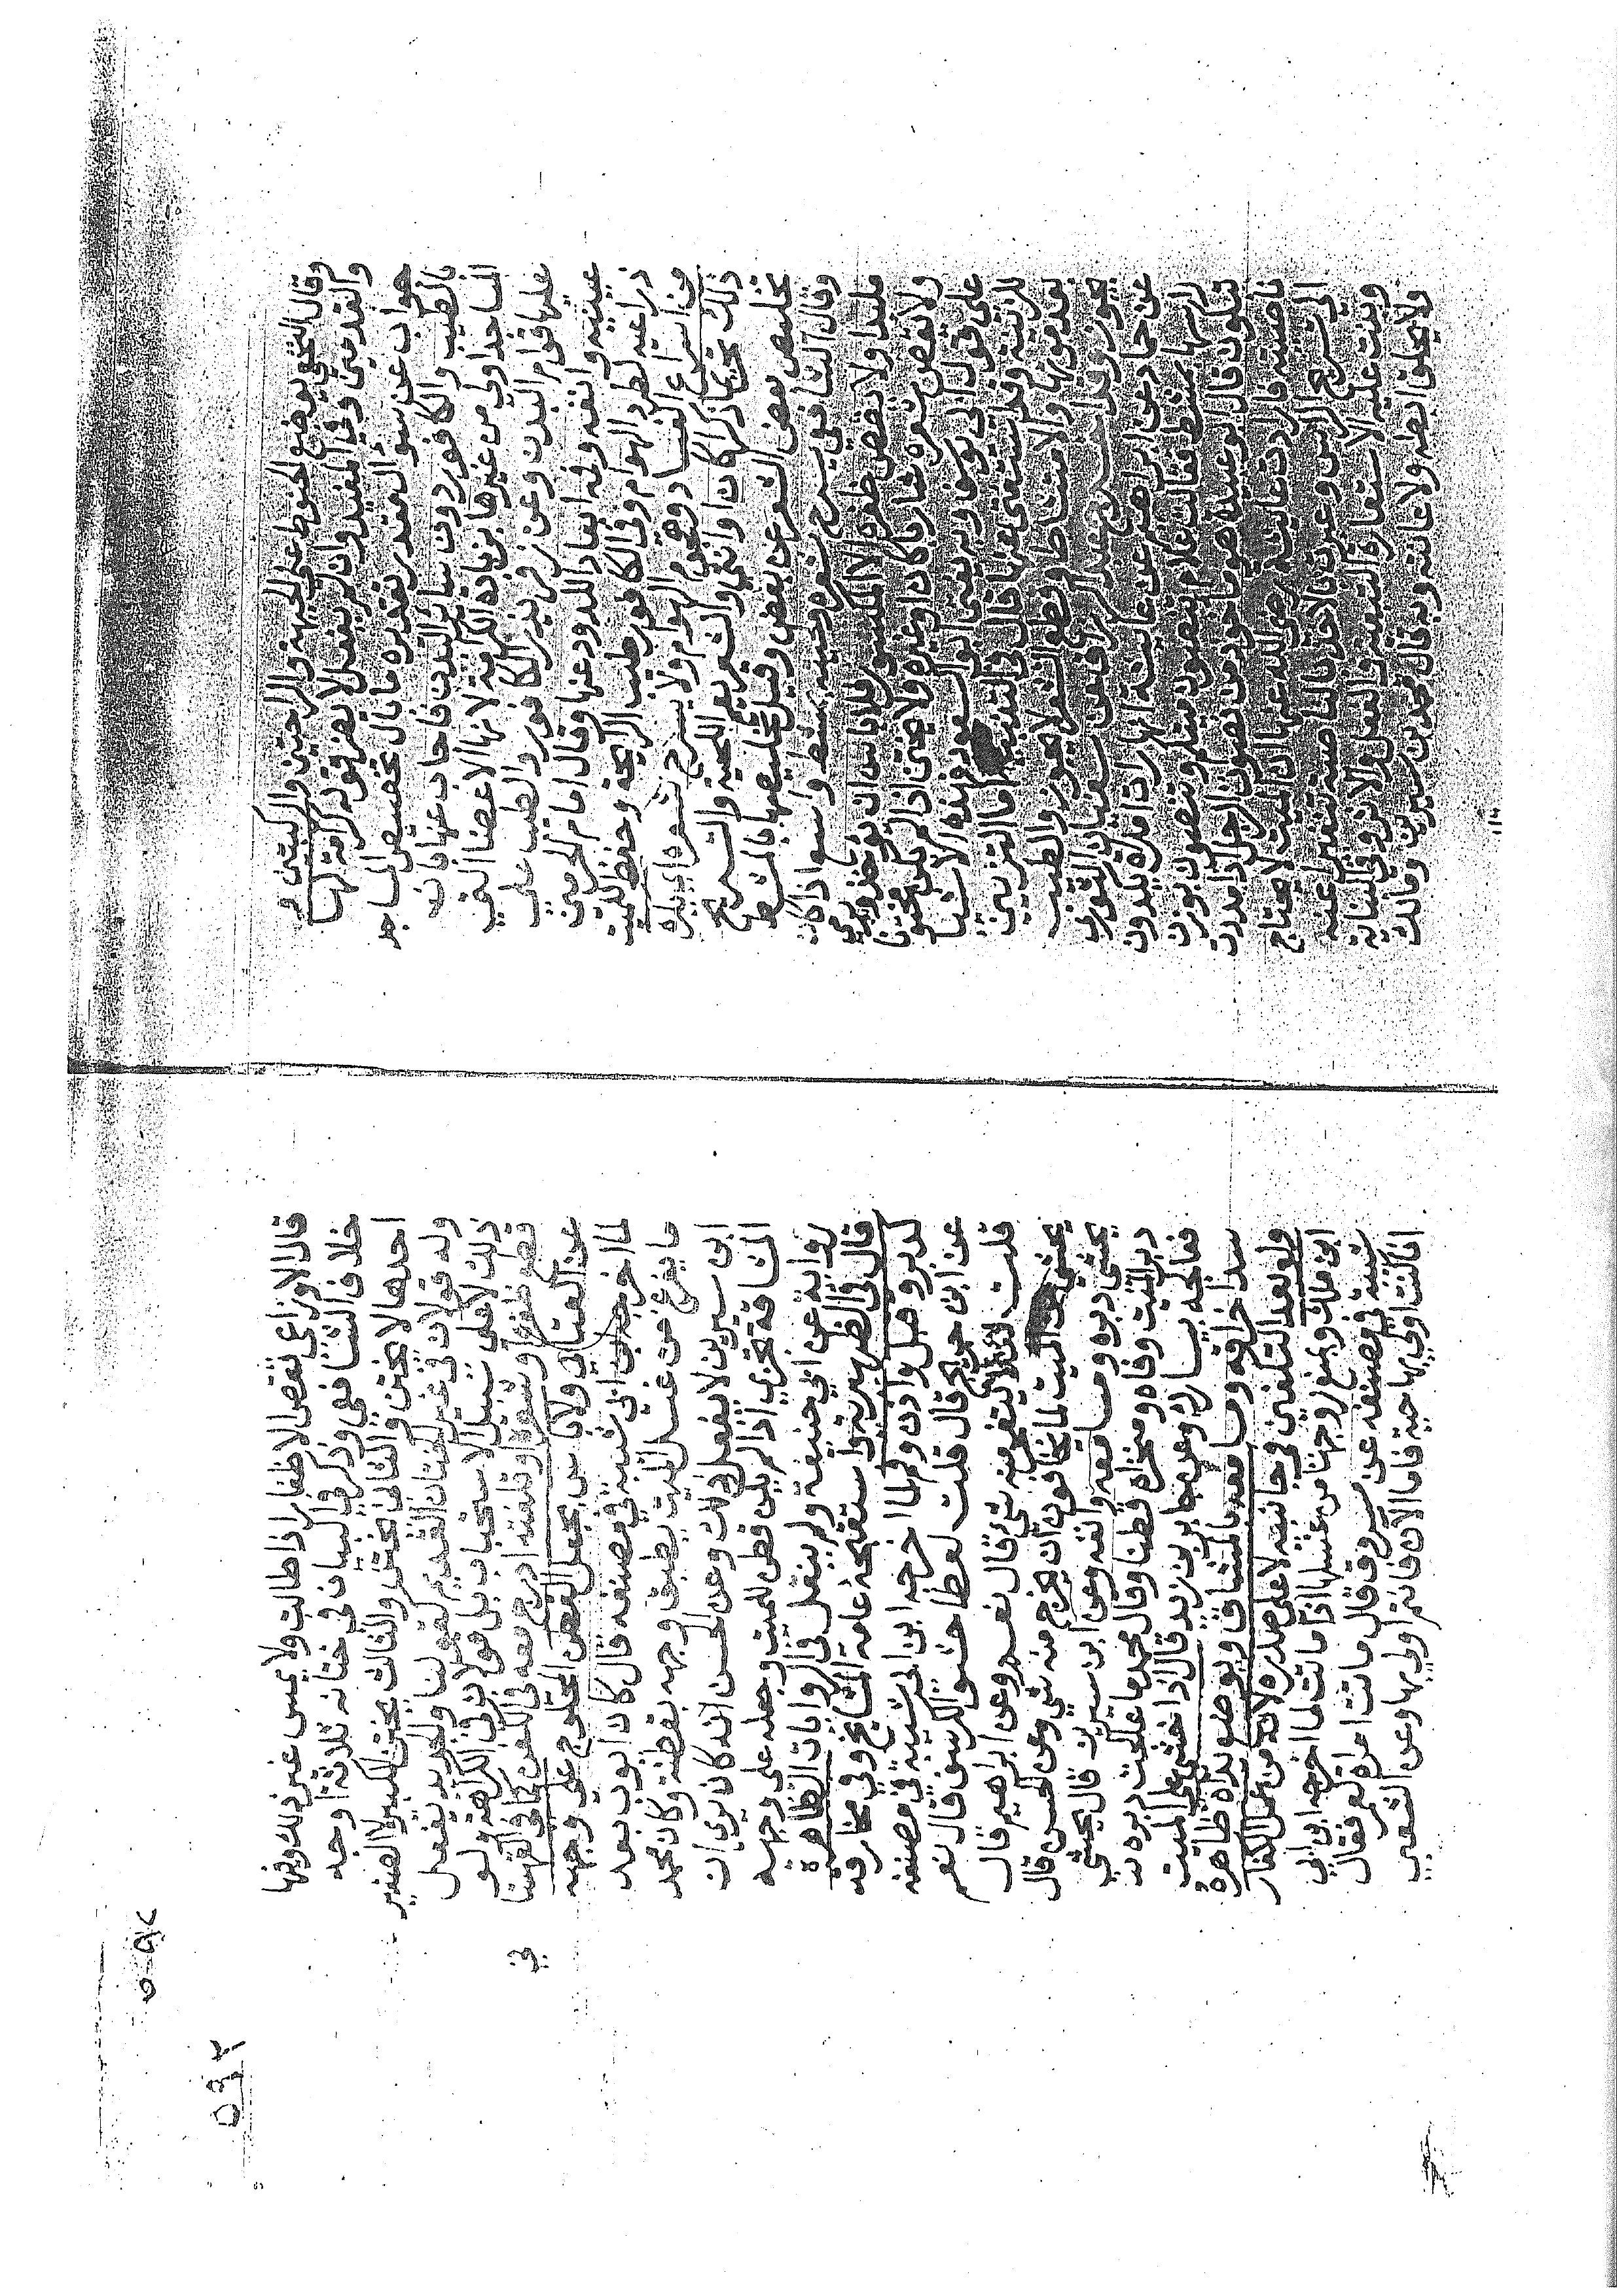 وقال النخعي يوضع الحنوط على الجبهة والراحتين والركبتين
والقدمين وفي المفيد وان لم يفعل لا يضر قوله كرامة لها
جواب عن سؤال مقدر تقديره ما بال تخصيص المساجد
بالطيب والكافور دون سائر البدن فاجاب عنها بانه
المساجد اولى من غيرها بزيادة الكرامة لانها الاعضا التي
عليها قوام البدن وعن زفر يذر الكافور والطيب على
عينيه وانفه وفمه ابعاد للدود عنها وقال امام الحرمين
ذراعيه لطرد الهوام وفي الكافور طيب الرايحة وحفظ للميت
من اسراع الفساد وهوم الهوام ولا يسرح شعره اي
ذلك تحريما ذكرا كان او انثى والشعر يعم اللحية والتسريح
تخليص بعض الشعر عن بعض وقيل تخليصها بالمشط
وقال الشافعي يسرح شعره ولحيته بمشط واسع اذا كان
ملبدا ولا يقص ظفره الا المكسور فلا باس ان يؤخذ وروي
ولا يقص شعره شاربا كان او غيره ولا يختن اذا لم يكن مختونا
على قول ابي يوسف وبه يفتى ابو السعود هذه الاشيا
للزينة وقد استغنى عنها قال في القنية اما التزيين
بعد موتها والامتشاط وقطع الشعر لا يجوز والطيب
يجوز وقد عبد الرزاق عن سفيان الثوري
عن حماد عن ابراهيم عن عايشة انها رات امراة يكدون
راسها بمشط فقالت علام تنصون ميتكم وتنصون بوزن
تبكون قال ابو عبيد هو ماخوذ من نصوت الرجل اذا مددت
ناصيته فارادت عايشة رضي الله عنها ان الميت لا يحتاج
الى تسريح الراس وعبرت بالاخذ بالناصية تنفيرا عنه
وبنت عليه الاستعارة التبعية في الفعل والاثر وفي البناية
ولا يحلق ابطه ولا عانته وبه قال محمد بن سيرين ومالك
قال الاوزاعي تقص الاظفار اذا طالت ولا يمس غير ذلك وفيها
خلاف الشافعي وذكر في البيان في ختانه ثلاثة اوجه
احدها لا يختن والثاني يختن والثالث يختن الكبير لا الصغير
وله قولان في غير الختان القديم كقولنا والجديد يفعل
ذلك لا على سبيل الاستحباب بل هو لا يورث الكراهة ولو
قطع ظفره او شعره او قلفته ادرج معه في الكفن كما في القهستا
في
عن العتابي ولا باس بجعل القطن المحلوج على وجهه
لما اخرجه ابن ابي شيبة في مصنفه قال كان ايوب بعد
ما يفرغ من غسل الميت يطبق وجهه بقطنة وكان محمد
ابن سيرين لا يفعل ذلك وعن الحسن انه كان يرى ان
المشاقة تجزي اذا لم يكن قطن للميت وجعله على وجهه
رواية عن ابي حنيفة ولم ينقل في الروايات الظاهرة
قال في الظهيرية واستقبحه عامة المشايخ وفي مخارقه
كدبر وقبل واذن وفم لما اخرجه ابن ابي شيبة في مصنفه
عن ابن جريج قال قلت لعطا حشو الكرسف قال نعم
قلت لئلا يتفجر منه شي قال نعم وعن ابراهيم قال
يحشى من الميت لما يخافون ان يخرج منه شي وعن الحسن قال
يحشى دبره ومسامعه وانفه وعن ابن سيرين قال يحشى
دبر الميت وفاه ومنخراه قطنا وقال محمد ما عالجت دبره
فعالجه بيسارك وعن جابر بن زيد قال اذا خشي على الميت
سد اخراقه ومسامعه بالمشاق ويوضع يداه ظاهرة
ولو بعد التكفين في جانبيه لا على صدره لانه من عمل الكفار
ابن ملك ويمنع زوجها من غسلها اذا ماتت لما اخرجه ابن ابي
شيبة في مصنفه عن مسروق قال ماتت امراة لعمر فقال
انا كنت اولى بها حية فاما الان فانتم اولى بها وعن الشعبي